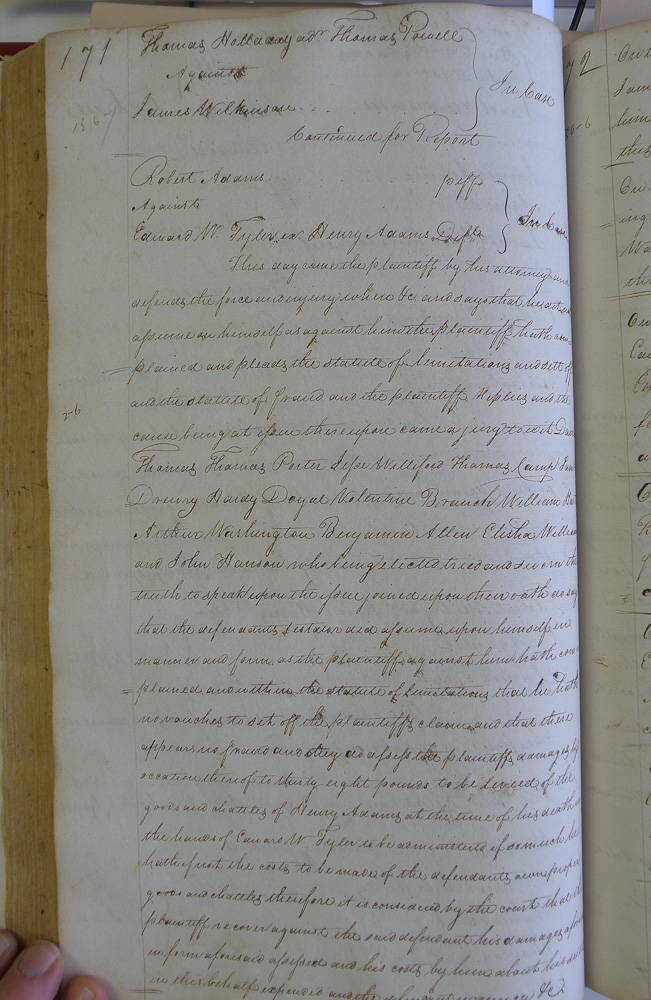 171
Thomas Holladay adr Thomas Powell
Against
James Wilkinson
In Case
Continued for Report
Robert Adams piff
Against
Edward W. Tyler ex Henry Adams Deft
In Case
This day came the plaintiff by his attorney and
defends the force and injury when &c and says that he did not
assume on himself as against him the plaintiff hath com
= plained and pleads the statute of limitations and sett off
and the statute of fraud and the plaintiff Replies and the
2-6
cause being at issue there upon came a jury to wit
Thomas Thomas Porter Jesse Williford Thomas Camp
Drewry Hardy Doyal Valentine Branch William
Arthur Washington Benjamin Allen Elisha
and John Hanson who being elected tried and sworn the
truth to speak upon the issue joined upon their oath do say
that the defendants testator did assume upon himself in
manner and form as the plaintiff against him hath com
= plained and within the statute of limitations that he hath
no vouches to set off the plaintiffs claim and that there
appears no fraud and they do assess the plaintiffs damages by
occation thereof to thirty eight pounds to be levied of the
goods and chattles of Henry Adams at the time of his death in
the hands of Edward W Tyler to be administerd if so much he
hath if not the costs to be made of the defendants own proper
goods and chattles therefore it is considered by the court that the
plaintiff recover against the said defendant his damages
in form aforesaid assessed and his costs by him about his suit
in this behalf expended and the defendant &c
72